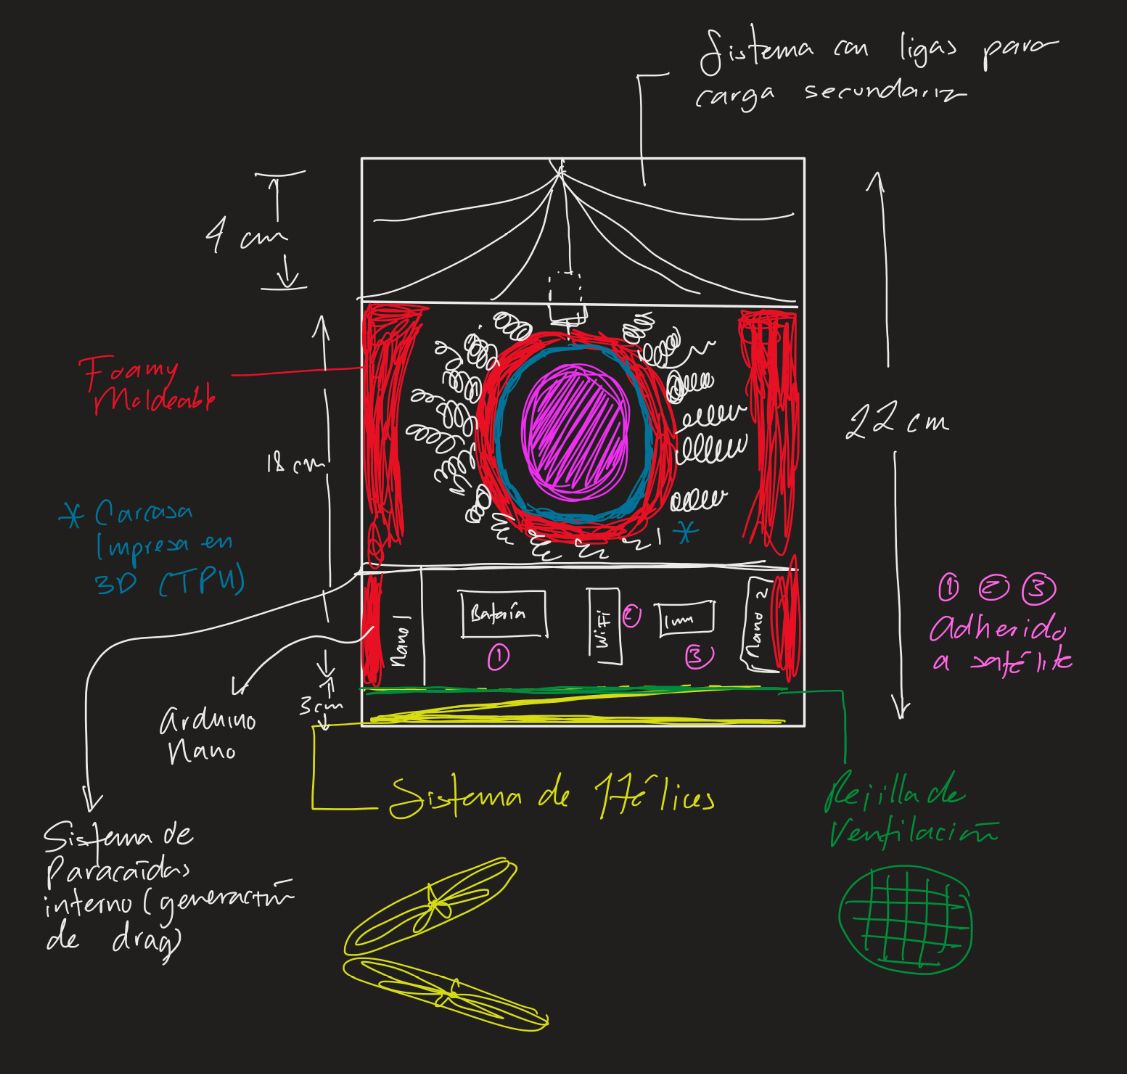 Sistema con ligas para
carga secundaria
4 cm
Foamy
Moldeable
18 cm
22 cm
* Carcasa
Impresa en
3D (TPU)
*
Nano 1
Batería
1
WiFi
2
Imu
3
Nano 2
1 2 3
Adherido
a satélite
3cm
Arduino
Nano
Sistema de Hélices
Rejilla de
Ventilación
Sistema de
Paracaídas
interno (generación
de drag)